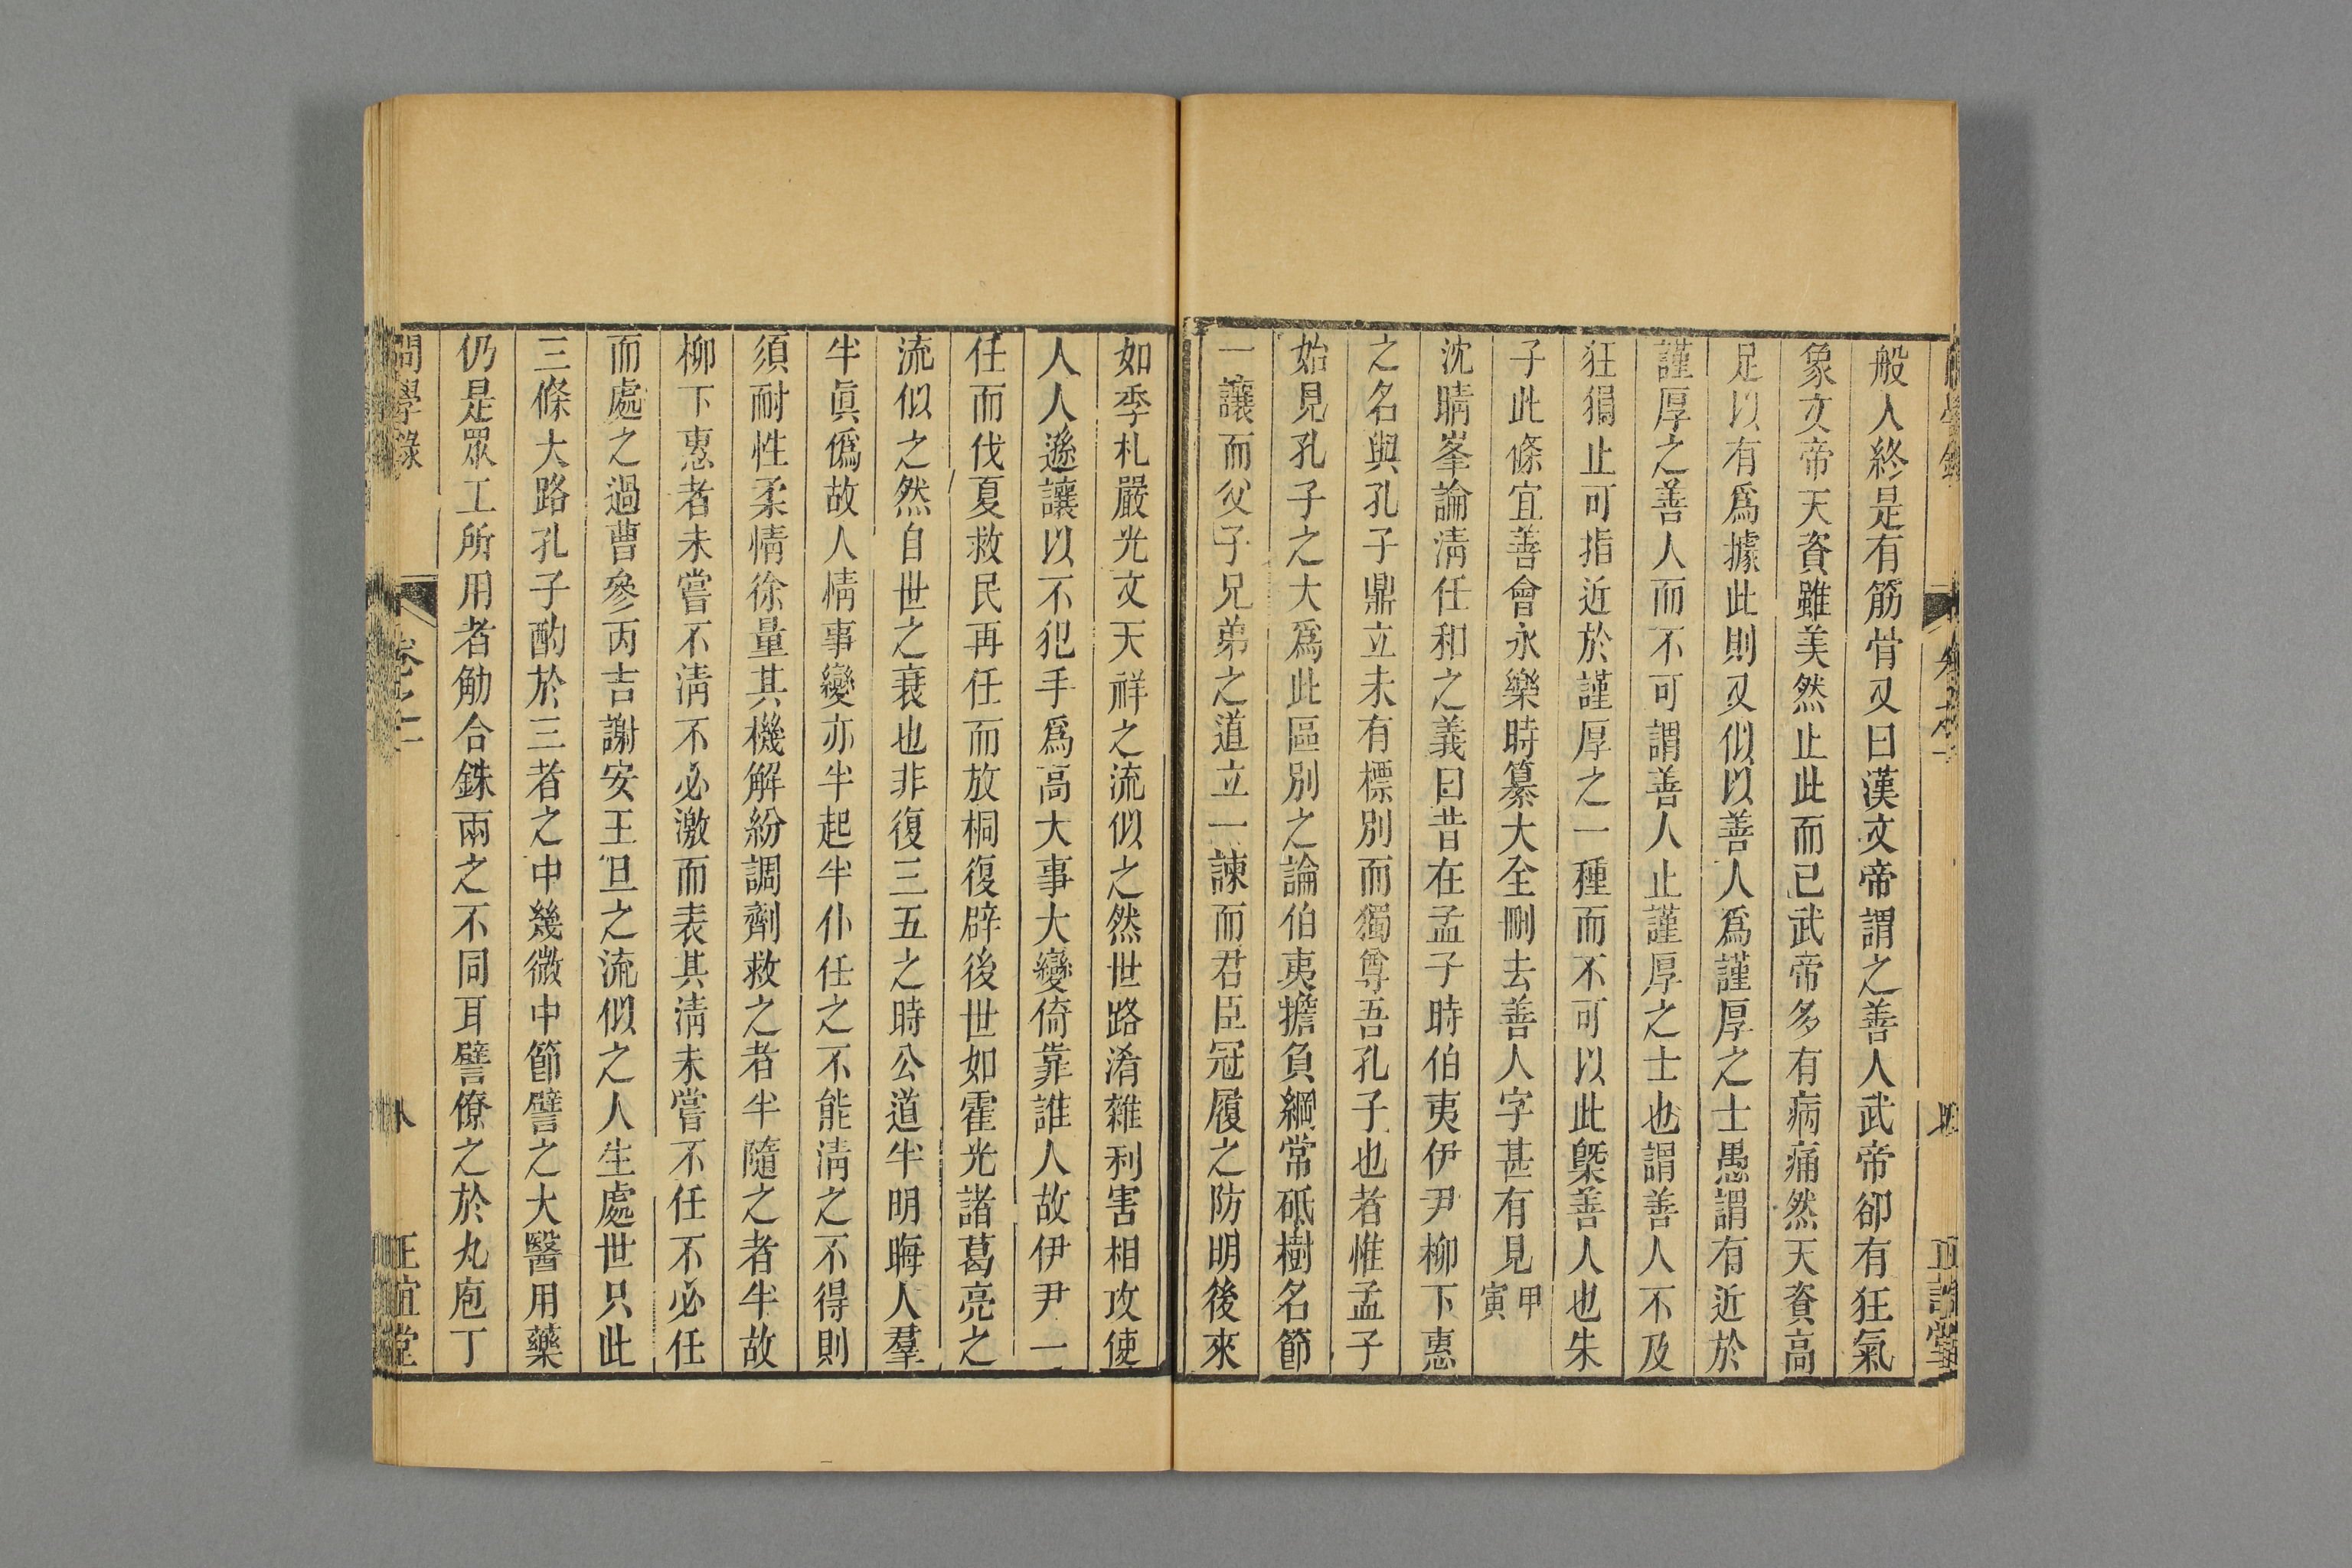 般人終是有筋骨又曰漢文帝謂之善人武帝卻有狂氣
象文帝天資雖美然止此而已武帝多有病痛然天資高
足以有爲據此則又似以善人爲謹厚之士愚謂有近於
謹厚之善人而不可謂善人止謹厚之士也謂善人不及
狂狷止可指近於謹厚之一種而不可以此槩善人也朱
子此條宜善會永樂時纂大全刪去善人字甚有見甲寅
沈晴峯論淸任和之義曰昔在孟子時伯夷伊尹柳下惠
之名與孔子鼎立未有標別而獨尊吾孔子也者惟孟子
始見孔子之大爲此區別之論伯夷擔負綱常砥樹名節
一讓而父子兄弟之道立一諫而君臣冠履之防明後來
如季札嚴光文天祥之流似之然世路淆雜利害相攻使
人人遜讓以不犯手爲高大事大變倚靠誰人故伊尹一
任而伐夏救民再任而放桐復辟後世如霍光諸葛亮之
流似之然自世之衰也非復三五之時公道半明晦人羣
半眞僞故人情事變亦半起半仆任之不能淸之不得則
須耐性柔情徐量其機解紛調劑救之者半隨之者半故
柳下惠者未嘗不淸不必激而表其淸未嘗不任不必任
而處之過曹參丙吉謝安王旦之流似之人生處世只此
三條大路孔子酌於三者之中幾微中節譬之大醫用藥
仍是眾工所用者觔合銖兩之不同耳譬僚之於丸庖丁
問學錄 卷之二 八 正誼堂